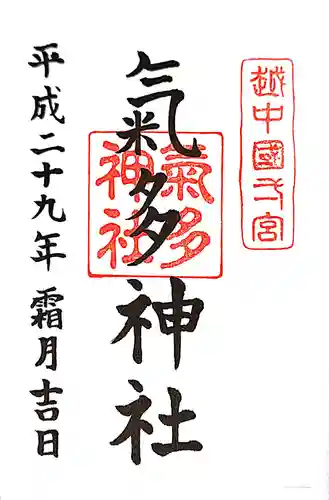 越中國弌宮
氣多神社
氣多神社
平成二十九年 霜月吉日